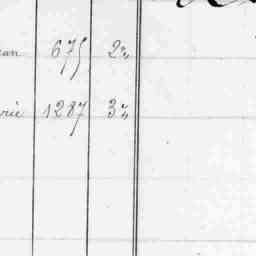 ean 675 2
rie 1287 3